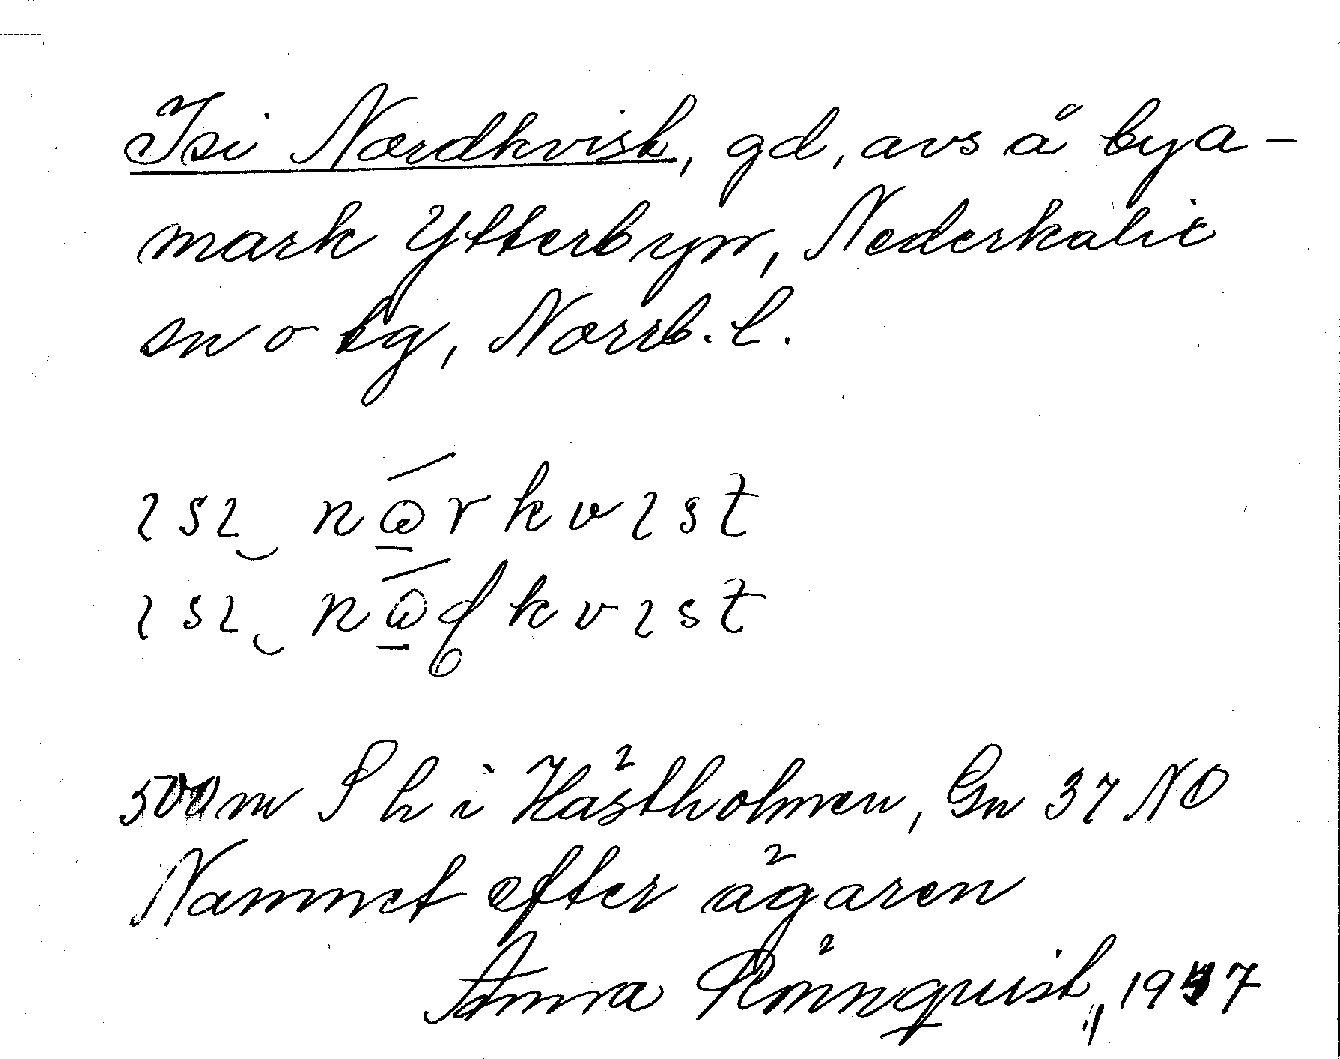 Isi Nordkvist, gd, avs å bya-
mark Ytterbyn, Nederkalix
sn o tg, Norrb. l.
ısı nɷrkvıst
ısı nɷɖkvıst
500 m S h i Hästholmen, Gn 37 NO
Namnet efter ägaren
Anna Rönnquist, 1937